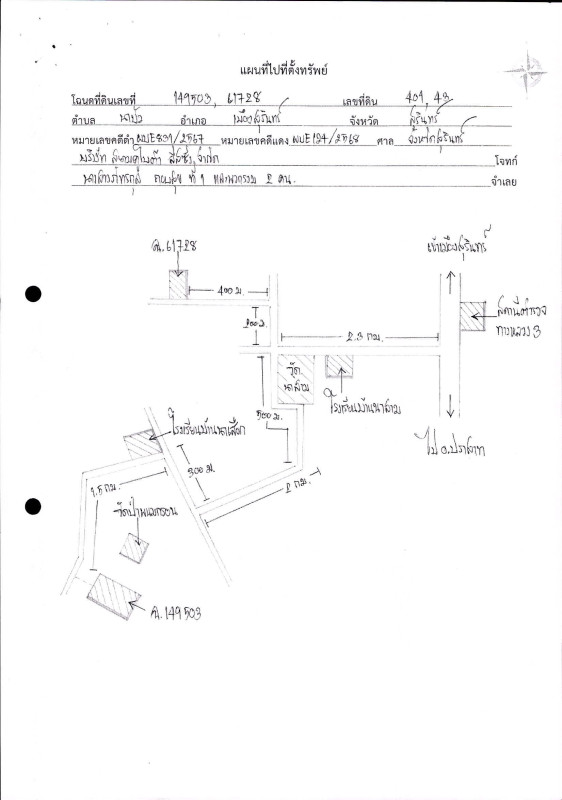 แผนที่ไปที่ตั้งทรัพย์
โฉนดที่ดินเลขที่ 149503, 61728 เลขที่ดิน 401, 43
ตำบล นาบัว อำเภอ เมืองสุรินทร์ จังหวัด สุรินทร์
หมายเลขคดีดำ ผบE831/2567 หมายเลขคดีแดง ผบE124/2568 ศาล จังหวัดสุรินทร์
บริษัท ลีสซิ่ง จำกัด โจทก์
นางสาว ที่ 1 และพวกรวม 2 คน. จำเลย
ฉ.61728
เข้าเมืองสุรินทร์
400 ม.
สถานีตำรวจ
ทางหลวง 3
200 ม.
2.3 กม.
วัด
นาสาม
โรงเรียนบ้านนาสาม
500 ม.
ไป อ.ปราสาท
โรงเรียนบ้าน
300 ม.
2 กม.
1.5 กม.
ฉ.149503